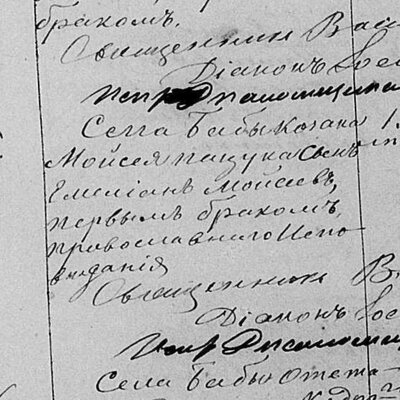 бракомъ.
Священникъ Васи
Діаконъ Іос
Села Бабы Козака
Моисея Пацука сынъ
Емеліанъ Моисеевъ,
первымъ бракомъ,
православнаго Испо-
вѣданія
Священникъ В
Діаконъ Іос
Села Бабы Отста-